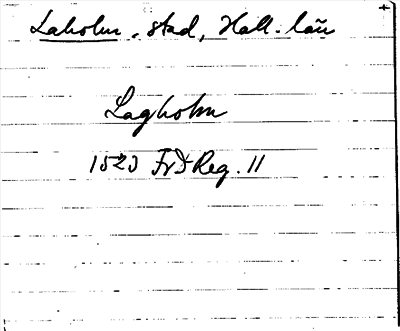 Laholm. stad, Hall. län
Lagholm
1523 FrIReg. 11